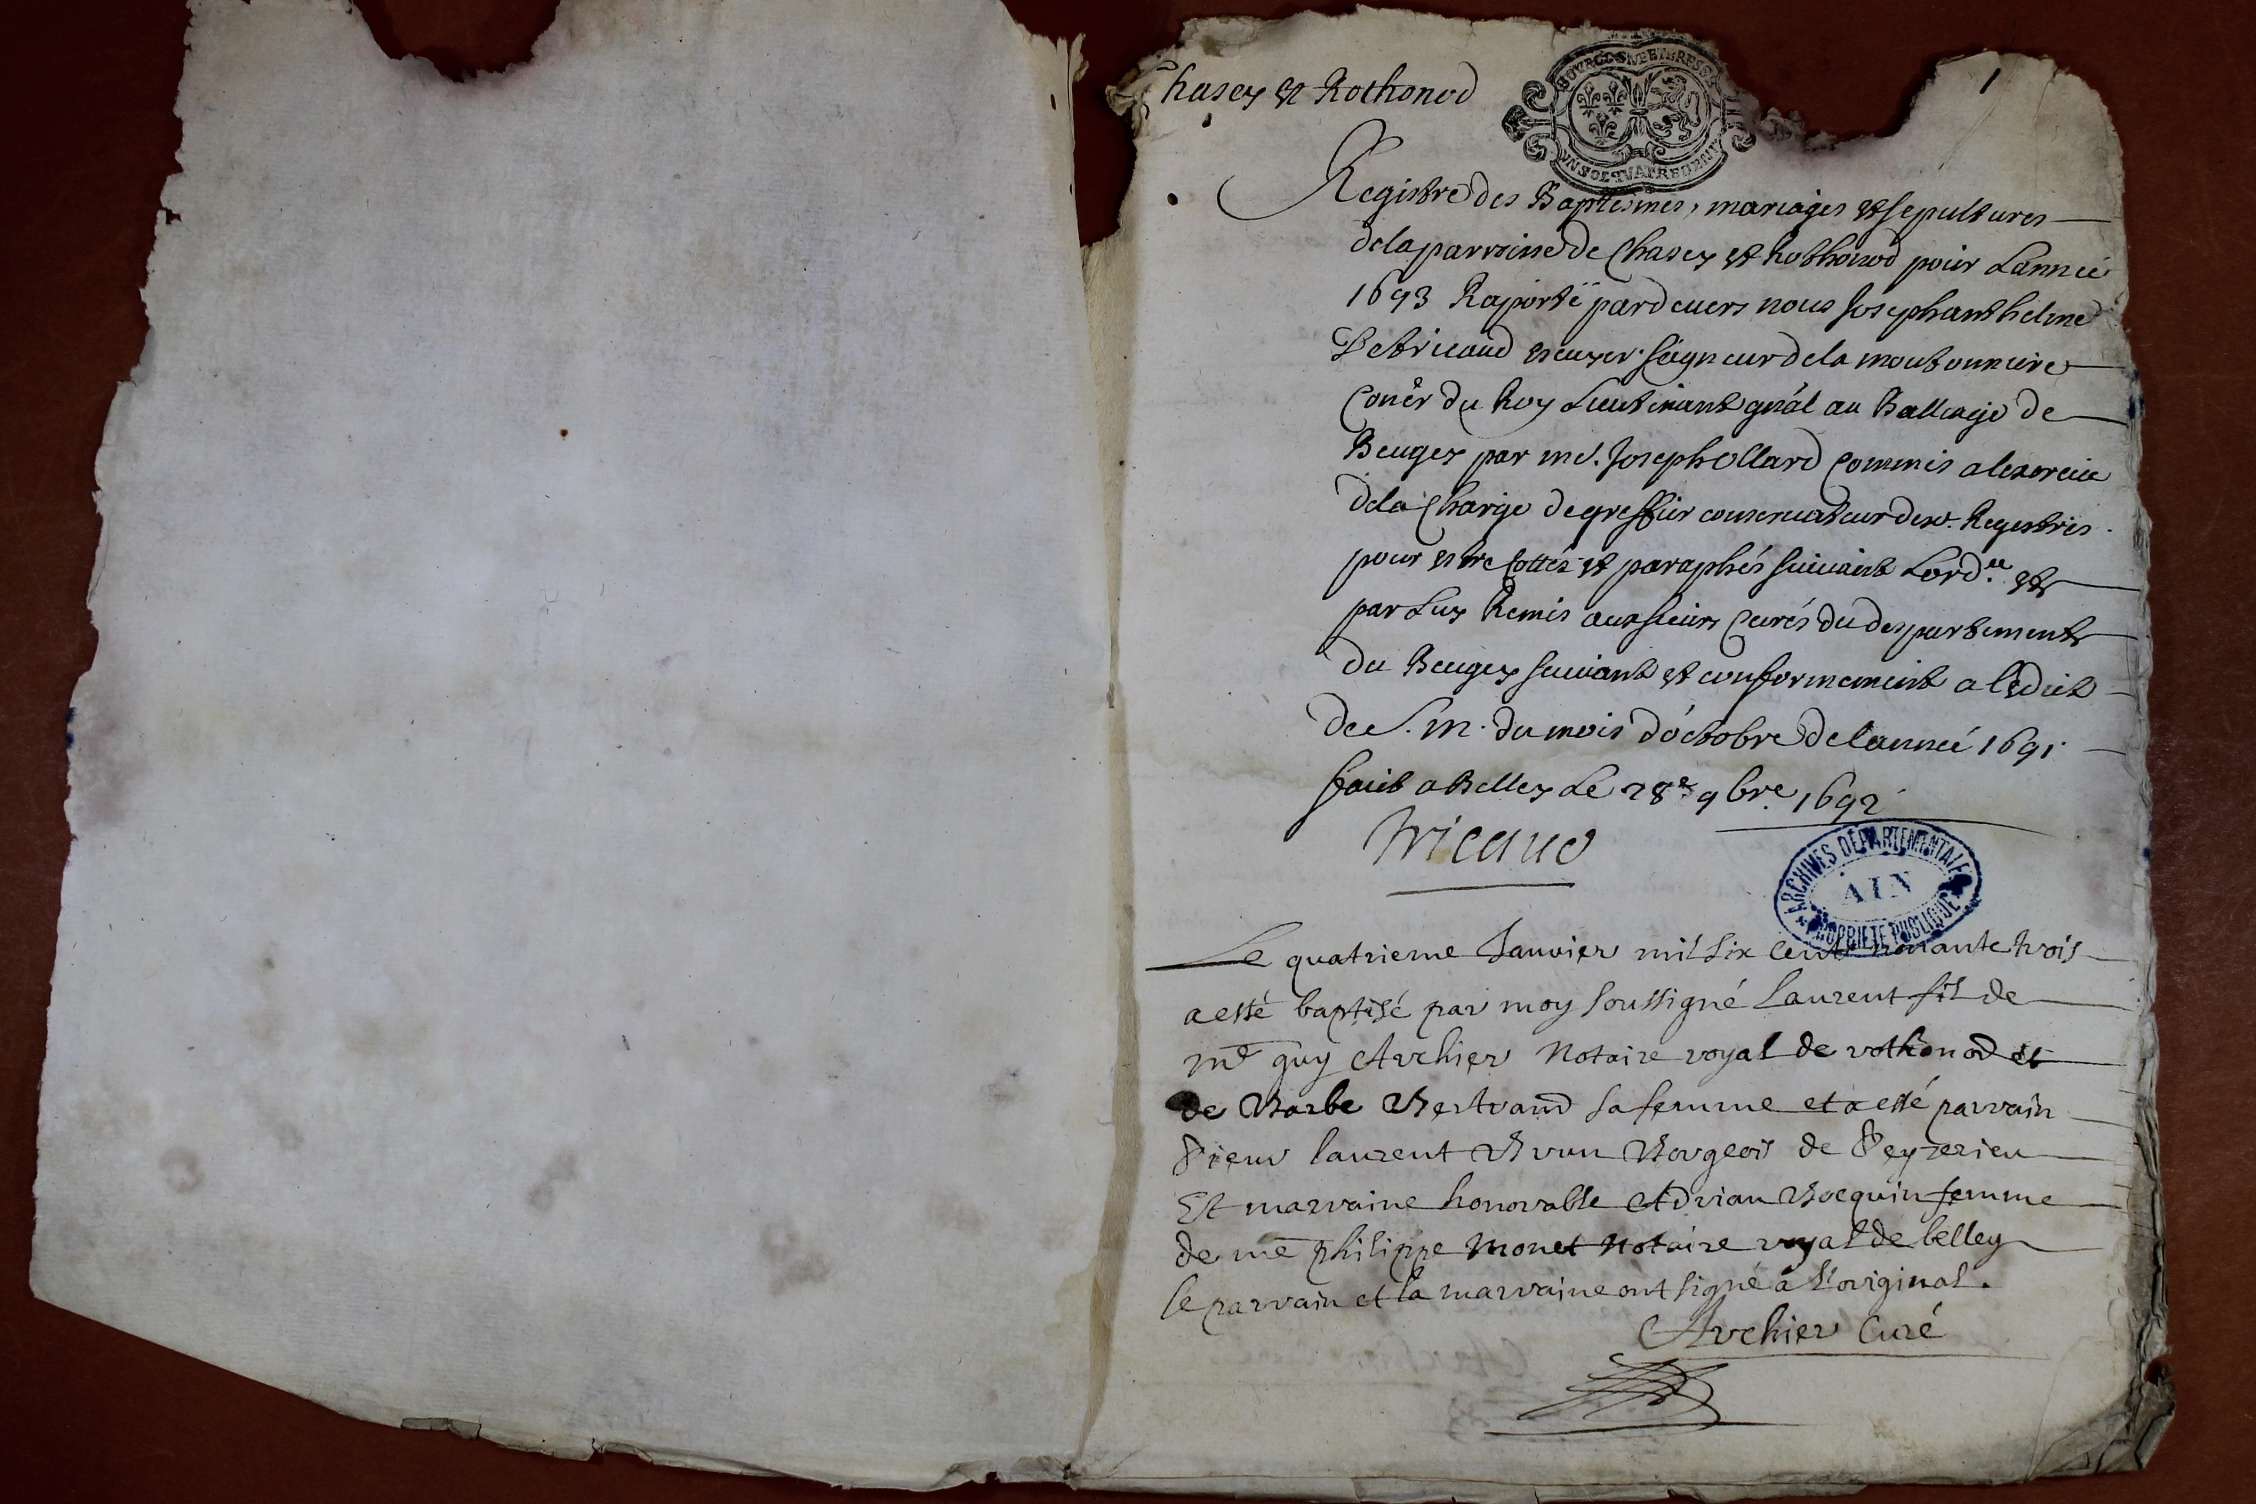 Chasey et Rothonod
1
BOURGOGNE ET BRESSE
UN SOL QUATRE DENIERS
Registre des Baptesmes, mariages et sepultures
de la parroisse de Chasey et Rothonod pour Lanneé
1693 Raporté pardeuers nous Josephanthelme
Detricaud escuyer seigneur de la moutonniere
Coner du Roy Lieutenant gnal au Balliage de
Beugey par me. Joseph Ollard Commis a lexercice
dela Charge de greffier conseruateur desd. Registres
pour estre Cottés et paraphés suiuant Lord.ce et
par Luy Remis aux sieurs Curés du despartement
du Beugey suiuant et conformement a lédict
de S. M. du mois d'octobre de lanneé 1691.
fait a Belley Le 28e 9bre. 1692
Tricaud
ARCHIVES DÉPARTEMENTALES
AIN
PROPRIÉTÉ PUBLIQUE
Le quatrieme Janvier mil six cent nonante trois
a esté baptisé par moy soussigné Laurent fils de
me guy Archier Notaire royal de rothonod et
de Barbe Bertrand sa femme et a esté parrain
Sieur laurent Brun Borgeois de Peyzrieu
Et marraine honorable Adrian Bocquin femme
de me philippe Monet Notaire royal de belley
le parrain et la marraine ont signé à l'original.
Archier Curé